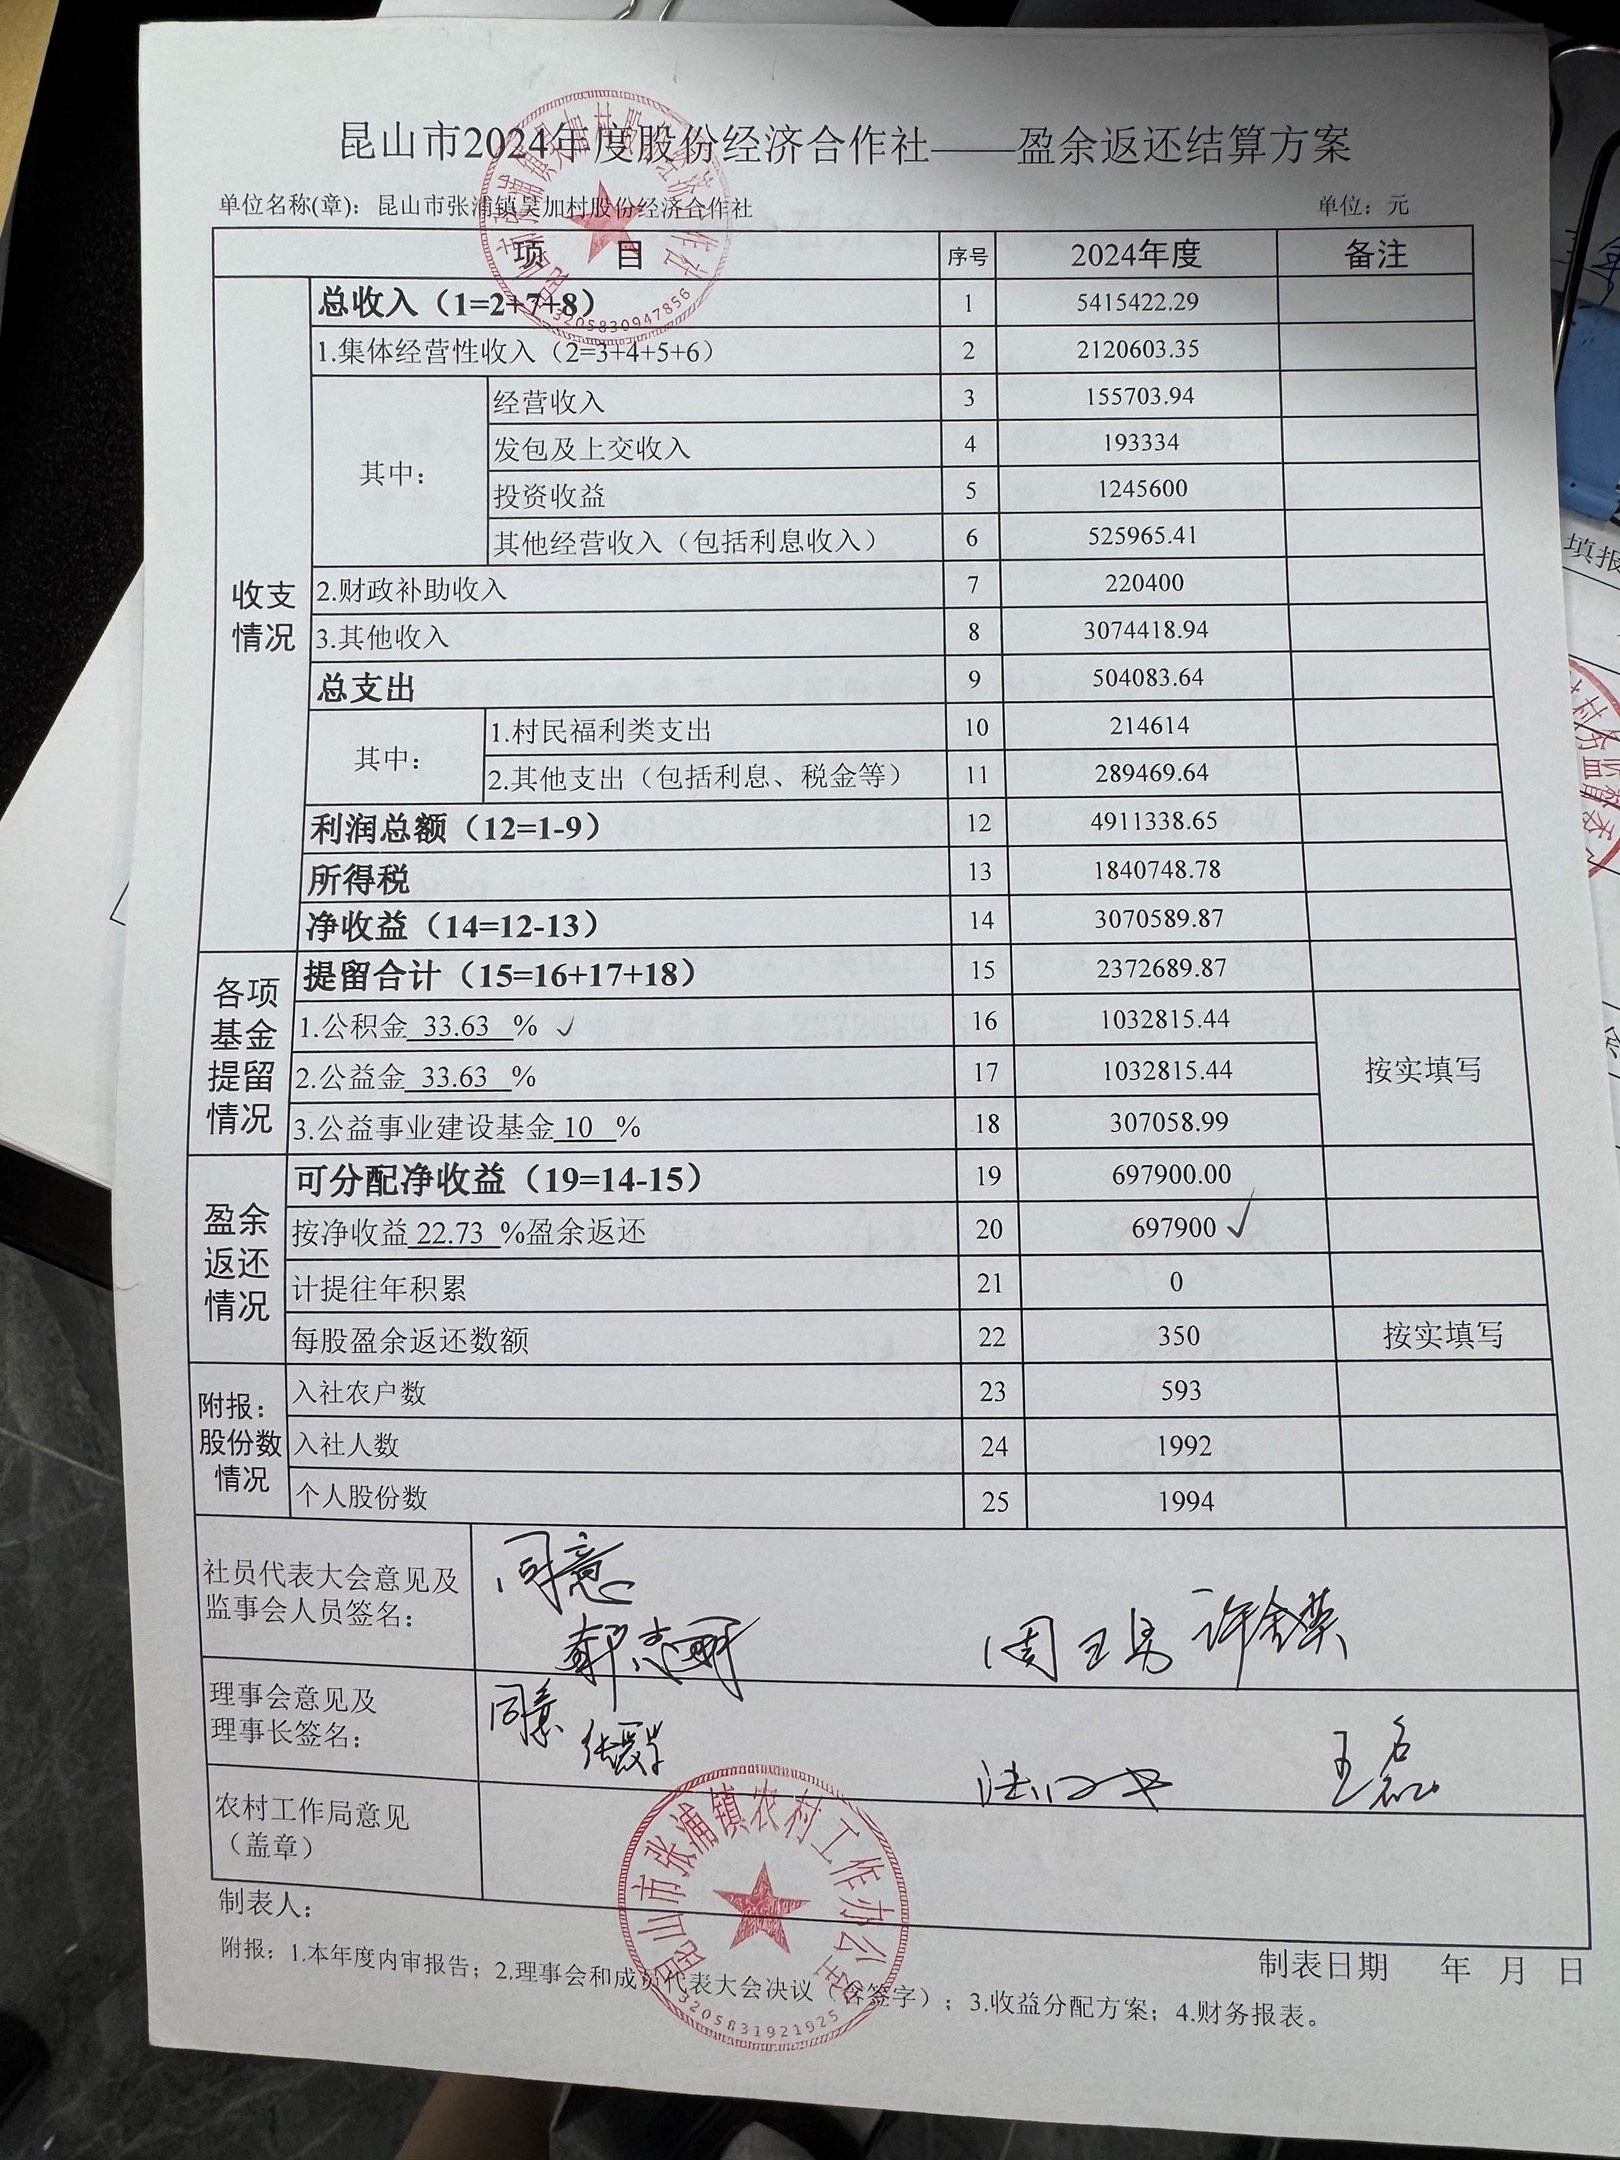 昆山市2024年度股份经济合作社——盈余返还结算方案
单位名称(章)：昆山市张浦镇吴加村股份经济合作社 单位：元
项 目 序号 2024年度 备注
收支情况
总收入（1=2+7+8） 1 5415422.29
1.集体经营性收入（2=3+4+5+6） 2 2120603.35
其中：
经营收入 3 155703.94
发包及上交收入 4 193334
投资收益 5 1245600
其他经营收入（包括利息收入） 6 525965.41
2.财政补助收入 7 220400
3.其他收入 8 3074418.94
总支出 9 504083.64
其中：
1.村民福利类支出 10 214614
2.其他支出（包括利息、税金等） 11 289469.64
利润总额（12=1-9） 12 4911338.65
所得税 13 1840748.78
净收益（14=12-13） 14 3070589.87
各项基金提留情况
提留合计（15=16+17+18） 15 2372689.87
1.公积金 33.63 % ✓ 16 1032815.44
2.公益金 33.63 % 17 1032815.44 按实填写
3.公益事业建设基金 10 % 18 307058.99
盈余返还情况
可分配净收益（19=14-15） 19 697900.00
按净收益 22.73 %盈余返还 20 697900 ✓
计提往年积累 21 0
每股盈余返还数额 22 350 按实填写
附报：股份数情况
入社农户数 23 593
入社人数 24 1992
个人股份数 25 1994
社员代表大会意见及
监事会人员签名：
同意
理事会意见及
理事长签名：
同意
王磊
农村工作局意见
（盖章）
昆山市张浦镇农村工作办公室
3205831921925
3205830947856
制表人：
制表日期 年 月 日
附报：1.本年度内审报告；2.理事会和成员代表大会决议（含签字）；3.收益分配方案；4.财务报表。
填报